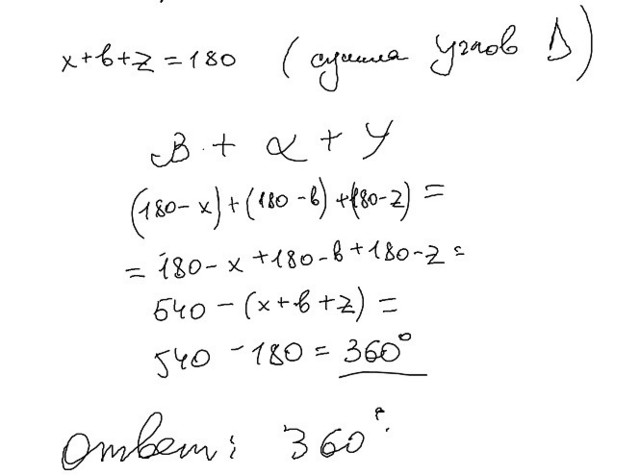 x+b+z=180 (сумма углов Δ)
β + α + y
(180-x)+(180-b)+(180-z)=
=180-x+180-b+180-z=
540-(x+b+z)=
540-180=360°
Ответ: 360°.